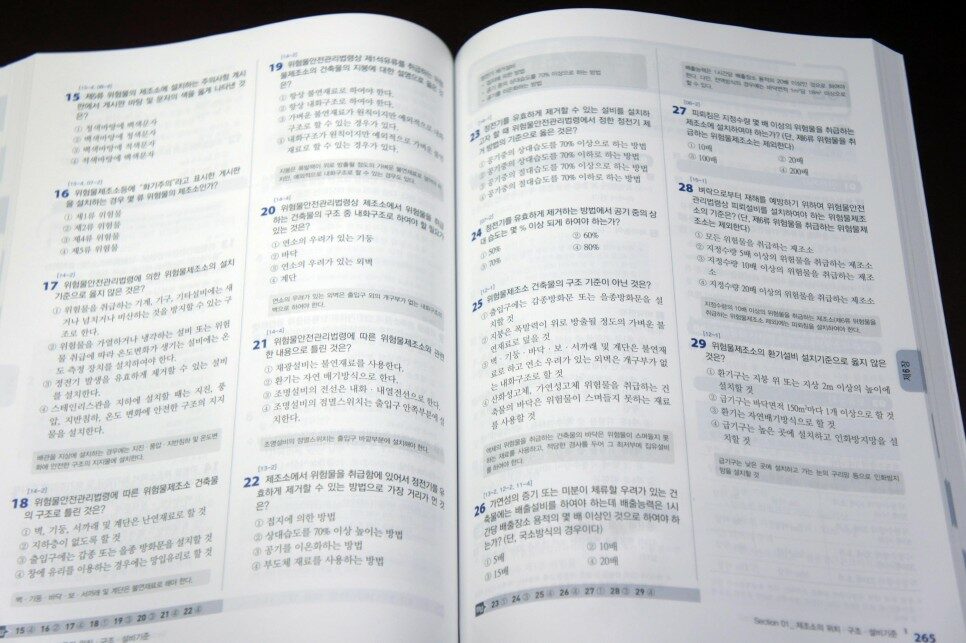 [15-4, 06-4]
15 제5류 위험물의 제조소에 설치하는 주의사항 게시
판에서 게시판 바탕 및 문자의 색을 옳게 나타낸 것
은?
① 청색바탕에 백색문자
② 백색바탕에 청색문자
③ 백색바탕에 적색문자
④ 적색바탕에 백색문자
[15-4, 07-2]
16 위험물제조소등에 "화기주의"라고 표시한 게시판
을 설치하는 경우 몇 류 위험물의 제조소인가?
① 제1류 위험물
② 제2류 위험물
③ 제4류 위험물
④ 제5류 위험물
[14-2]
17 위험물안전관리법령에 의한 위험물제조소의 설치
기준으로 옳지 않은 것은?
① 위험물을 취급하는 기계, 기구, 기타설비에는 새
거나 넘치거나 비산하는 것을 방지할 수 있는 구
조로 한다.
② 위험물을 가열하거나 냉각하는 설비 또는 위험
물 취급에 따라 온도변화가 생기는 설비에는 온
도 측정 장치를 설치하여야 한다.
③ 정전기 발생을 유효하게 제거할 수 있는 설비
를 설치한다.
④ 스테인리스관을 지하에 설치할 때는 지진, 풍
압, 지반침하, 온도 변화에 안전한 구조의 지지
물을 설치한다.
배관을 지상에 설치하는 경우에는 지진 · 풍압 · 지반침하 및 온도변
화에 안전한 구조의 지지물에 설치한다.
[14-2]
18 위험물안전관리법령에 따른 위험물제조소 건축물
의 구조로 틀린 것은?
① 벽, 기둥, 서까래 및 계단은 난연재료로 할 것
② 지하층이 없도록 할 것
③ 출입구에는 갑종 또는 을종 방화문을 설치할 것
④ 창에 유리를 이용하는 경우에는 망입유리로 할 것
벽 · 기둥 · 바닥 · 보 · 서까래 및 계단은 불연재료로 해야 한다.
15 ④ 16 ② 17 ④ 18 ① 19 ③ 20 ③ 21 ④ 22 ④
[14-2]
19 위험물안전관리법령상 제1석유류를 취급하는 위험
물제조소의 건축물의 지붕에 대한 설명으로 옳은 것
은?
① 항상 불연재료로 하여야 한다.
② 항상 내화구조로 하여야 한다.
③ 가벼운 불연재료가 원칙이지만 예외적으로 내화
구조로 할 수 있는 경우가 있다.
④ 내화구조가 원칙이지만 예외적으로 가벼운 불연
재료로 할 수 있는 경우가 있다.
지붕은 폭발력이 위로 방출될 정도의 가벼운 불연재료로 덮어야 하
지만, 예외적으로 내화구조로 할 수 있는 경우도 있다.
[14-4]
20 위험물안전관리법령상 제조소에서 위험물을 취급
하는 건축물의 구조 중 내화구조로 하여야 할 필요가
있는 것은?
① 연소의 우려가 있는 기둥
② 바닥
③ 연소의 우려가 있는 외벽
④ 계단
연소의 우려가 있는 외벽은 출입구 외의 개구부가 없는 내화구조의
벽으로 하여야 한다.
[14-4]
21 위험물안전관리법령에 따른 위험물제조소와 관련
한 내용으로 틀린 것은?
① 채광설비는 불연재료를 사용한다.
② 환기는 자연 배기방식으로 한다.
③ 조명설비의 전선은 내화 · 내열전선으로 한다.
④ 조명설비의 점멸스위치는 출입구 안쪽부분에 설
치한다.
조명설비의 점멸스위치는 출입구 바깥부분에 설치해야 한다.
[13-2]
22 제조소에서 위험물을 취급함에 있어서 정전기를 유
효하게 제거할 수 있는 방법으로 가장 거리가 먼 것
은?
① 접지에 의한 방법
② 상대습도를 70% 이상 높이는 방법
③ 공기를 이온화하는 방법
④ 부도체 재료를 사용하는 방법
정전기 제거설비
· 접지에 의한 방법
· 공기 중의 상대습도를 70% 이상으로 하는 방법
· 공기를 이온화하는 방법
23 정전기를 유효하게 제거할 수 있는 설비를 설치하
고자 할 때 위험물안전관리법령에서 정한 정전기 제
거 방법의 기준으로 옳은 것은?
① 공기중의 상대습도를 70% 이상으로 하는 방법
② 공기중의 상대습도를 70% 이하로 하는 방법
③ 공기중의 절대습도를 70% 이상으로 하는 방법
④ 공기중의 절대습도를 70% 이하로 하는 방법
[07-2]
24 정전기를 유효하게 제거하는 방법에서 공기 중의 상
대 습도는 몇 % 이상 되게 하여야 하는가?
① 50%
② 60%
③ 70%
④ 80%
[12-1]
25 위험물제조소의 구조 기준이 아닌 것은?
① 출입구에는 갑종방화문 또는 을종방화문을 설
치할 것
② 지붕은 폭발력이 위로 방출될 정도의 가벼운 불
연재료로 덮을 것
③ 벽 · 기둥 · 바닥 · 보 · 서까래 및 계단은 불연재
료로 하고 연소 우려가 있는 외벽은 개구부가 없
는 내화구조로 할 것
④ 산화성고체, 가연성고체 위험물을 취급하는 건
축물의 바닥은 위험물이 스며들지 못하는 재료
를 사용할 것
액체의 위험물을 취급하는 건축물의 바닥은 위험물이 스며들지 못
하는 재료를 사용하고, 적당한 경사를 두어 그 최저부에 집유설비
를 하여야 한다.
[13-2, 12-2, 11-4]
26 가연성의 증기 또는 미분이 체류할 우려가 있는 건
축물에는 배출설비를 하여야 하는데 배출능력은 1시
간당 배출장소 용적의 몇 배 이상인 것으로 하여야 하
는가? (단, 국소방식의 경우이다)
① 5배
② 10배
③ 15배
④ 20배
23 ① 24 ③ 25 ④ 26 ④ 27 ① 28 ③ 29 ④
배출능력은 1시간당 배출장소 용적의 20배 이상인 것으로 하여야
한다. 다만, 전역방식의 경우에는 바닥면적 1m²당 18m³ 이상으로
할 수 있다.
[08-2]
27 피뢰침은 지정수량 몇 배 이상의 위험물을 취급하는
제조소에 설치하여야 하는가? (단, 제6류 위험물을 취
급하는 위험물제조소는 제외한다)
① 10배
② 20배
③ 100배
④ 200배
[15-1]
28 벼락으로부터 재해를 예방하기 위하여 위험물안전
관리법령상 피뢰설비를 설치하여야 하는 위험물제조
소의 기준은? (단, 제6류 위험물을 취급하는 위험물제
조소는 제외한다)
① 모든 위험물을 취급하는 제조소
② 지정수량 5배 이상의 위험물을 취급하는 제조소
③ 지정수량 10배 이상의 위험물을 취급하는 제조
소
④ 지정수량 20배 이상의 위험물을 취급하는 제조소
지정수량의 10배 이상의 위험물을 취급하는 제조소(제6류 위험물을
취급하는 위험물제조소 제외)에는 피뢰침을 설치하여야 한다.
[12-1]
29 위험물제조소의 환기설비 설치기준으로 옳지 않은
것은?
① 환기구는 지붕 위 또는 지상 2m 이상의 높이에
설치할 것
② 급기구는 바닥면적 150m²마다 1개 이상으로 할 것
③ 환기는 자연배기방식으로 할 것
④ 급기구는 높은 곳에 설치하고 인화방지망을 설
치할 것
급기구는 낮은 곳에 설치하고 가는 눈의 구리망 등으로 인화방지
망을 설치할 것
제6장
Section 01_ 제조소의 위치 · 구조 · 설비기준
265